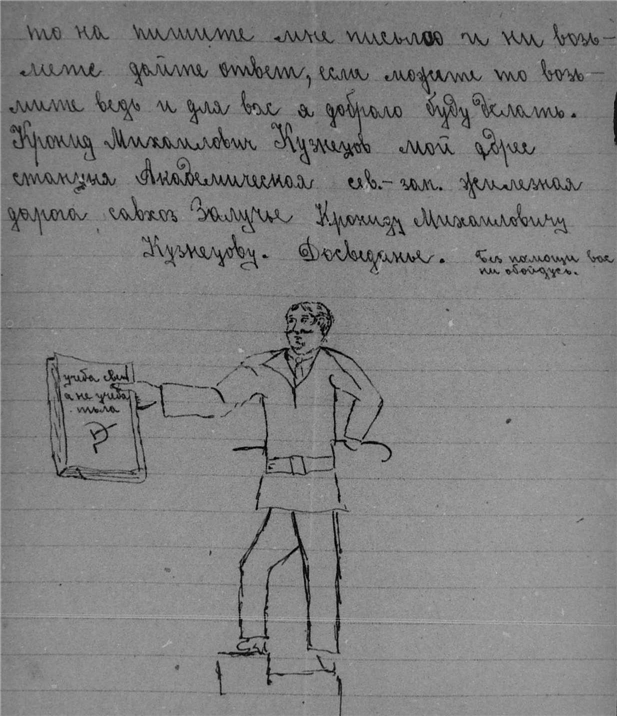 то на пишите мне письмо и ни возь-
мете дайте ответ, если можите то возь-
мите ведь и для вас я доброго буду делать.
Кронид Михаилович Кузнецов мой адрес
станцыя Академическая сев.- зап. жилезная
дорога савхоз Залучье Крониду Михаиловичу
Кузнецову. Досведанье. Без помощи вас
ни обойдусь.
учеба свит
а не учеба
тьма